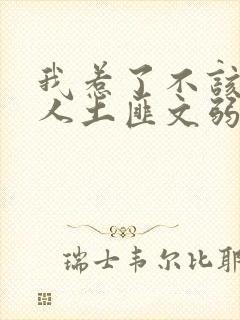 我惹了不该
人土匪文弱
瑞士韦尔比耶